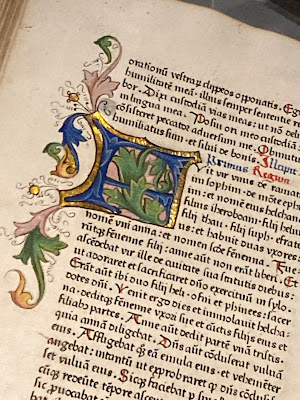 orationū vestraꝝ clipeos opponatis. Eg
humilitate meā: illius semper sententie r
bor. Dixi custodiā vias meas: ut nō de
in lingua mea. Posui ori meo custodi
cōsisteret peccator adversum me. Obmutui
humiliatus sum: et silui de bonis. Incipit
Primus Regum
it vir unus de rama
im sophim: de mōte ephrai
et nomē eius helchan
filius iheroboam: filij heliu
filij thau: filij suph: ephra
et habuit duas uxores:
nomē vni anna: et nomen scde fenenna. Fue
rūtqꝫ fenenne filij: anne aūt non erāt liberi. Et
ascēdebat vir ille de civitate sua statutis diebus:
ut adoraret et sacrificaret dño exercituū in sylo.
Erāt aūt ibi duo filij heli: ofni et phinees: sacer
dotes dñi. Venit ergo dies et immolavit helcha
na: deditqꝫ fenenne vxori sue et cūctis filijs eius et
filiabꝰ partes. Anne aūt dedit partē vnā tristis:
quia annā diligebat. Dñs aūt cōcluserat vulvā
eius. Affligebat qꝫ eā emula eius. et vehemēter
angebat: intantū ut exprobraret qꝫ dñs cōclusis
set vulvā eius. Sicqꝫ faciebat p sin
cūqꝫ redeūte tēpore ascēderet
sic provocabat